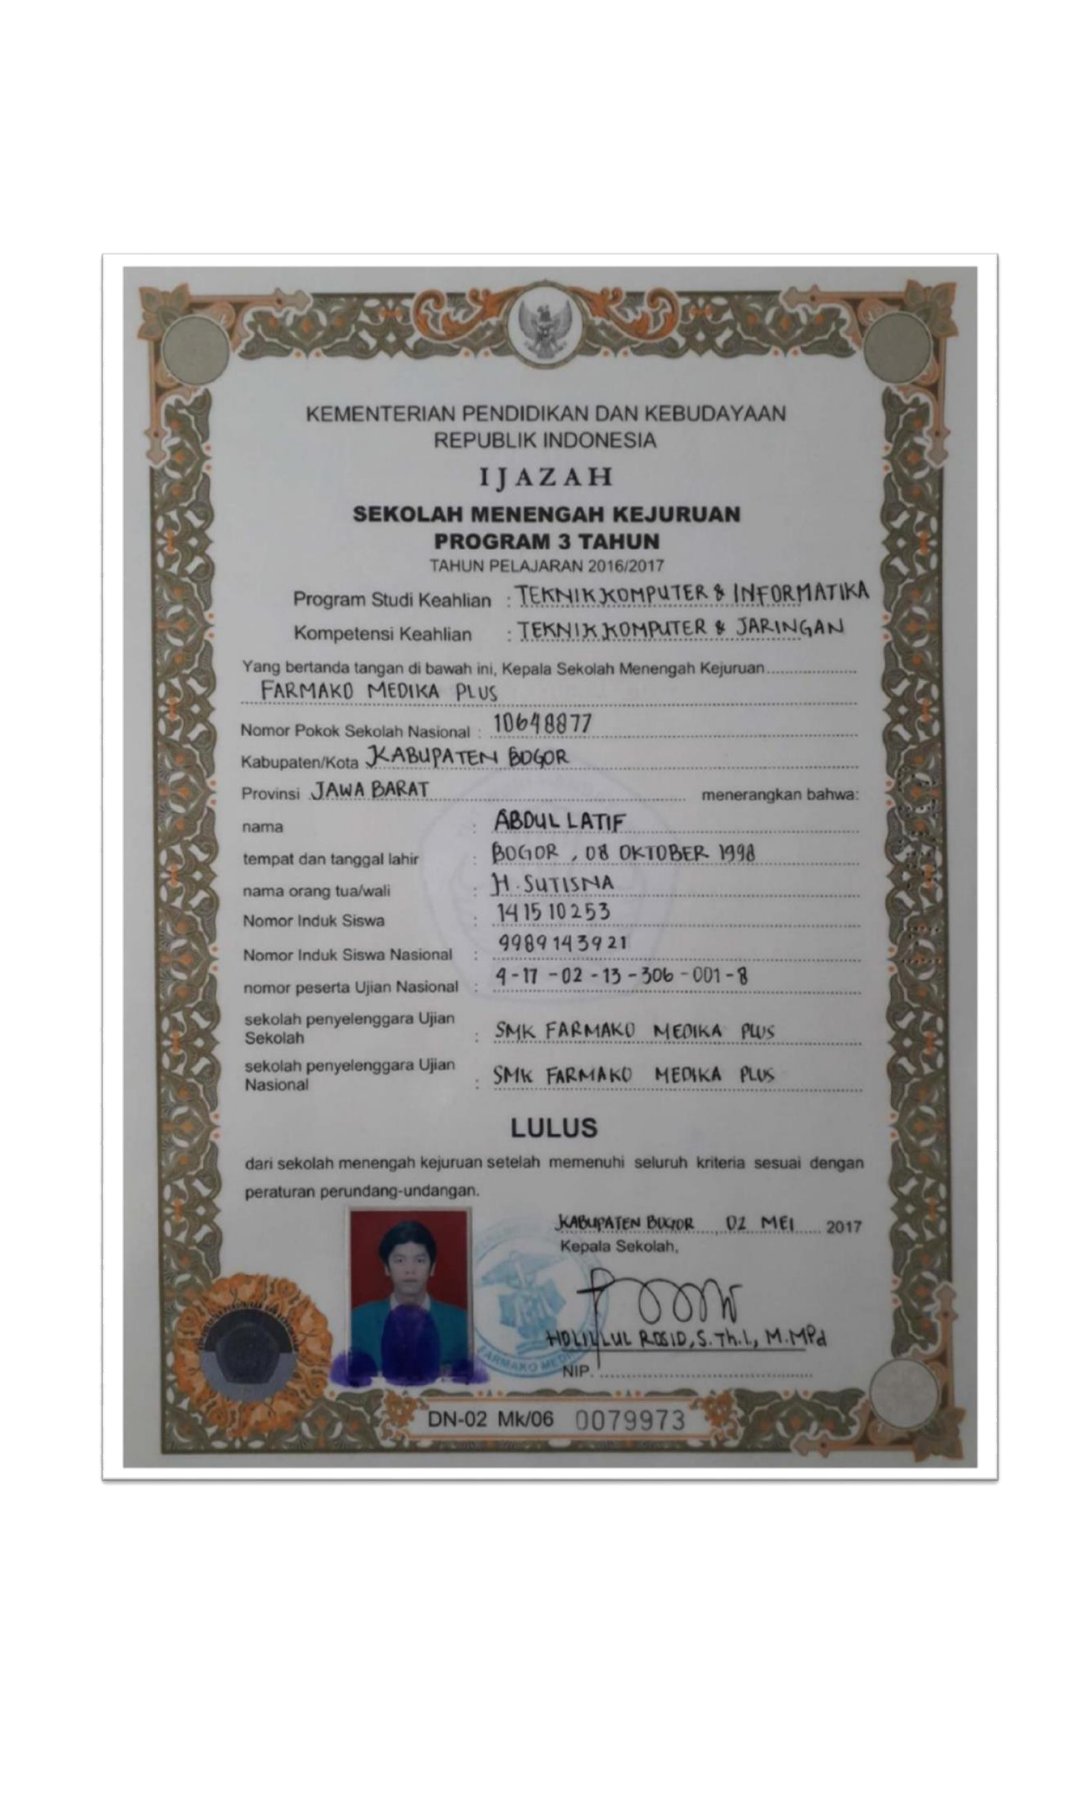 KEMENTERIAN PENDIDIKAN DAN KEBUDAYAAN
REPUBLIK INDONESIA
IJAZAH
SEKOLAH MENENGAH KEJURUAN
PROGRAM 3 TAHUN
TAHUN PELAJARAN 2016/2017
Program Studi Keahlian : TEKNIK KOMPUTER & INFORMATIKA
Kompetensi Keahlian : TEKNIK KOMPUTER & JARINGAN
Yang bertanda tangan di bawah ini, Kepala Sekolah Menengah Kejuruan
FARMAKO MEDIKA PLUS
Nomor Pokok Sekolah Nasional : 10648877
Kabupaten/Kota KABUPATEN BOGOR
Provinsi JAWA BARAT menerangkan bahwa:
nama : ABDUL LATIF
tempat dan tanggal lahir : BOGOR , 08 OKTOBER 1998
nama orang tua/wali : H. SUTISNA
Nomor Induk Siswa : 141510253
Nomor Induk Siswa Nasional : 9989143921
nomor peserta Ujian Nasional : 4-17-02-13-306-001-8
sekolah penyelenggara Ujian
Sekolah : SMK FARMAKO MEDIKA PLUS
sekolah penyelenggara Ujian
Nasional : SMK FARMAKO MEDIKA PLUS
LULUS
dari sekolah menengah kejuruan setelah memenuhi seluruh kriteria sesuai dengan
peraturan perundang-undangan.
KABUPATEN BOGOR , 02 MEI 2017
Kepala Sekolah,
HOLILLUL ROSID, S.Th.I., M.MPd
NIP.
FARMAKO MEDI
DN-02 Mk/06 0079973